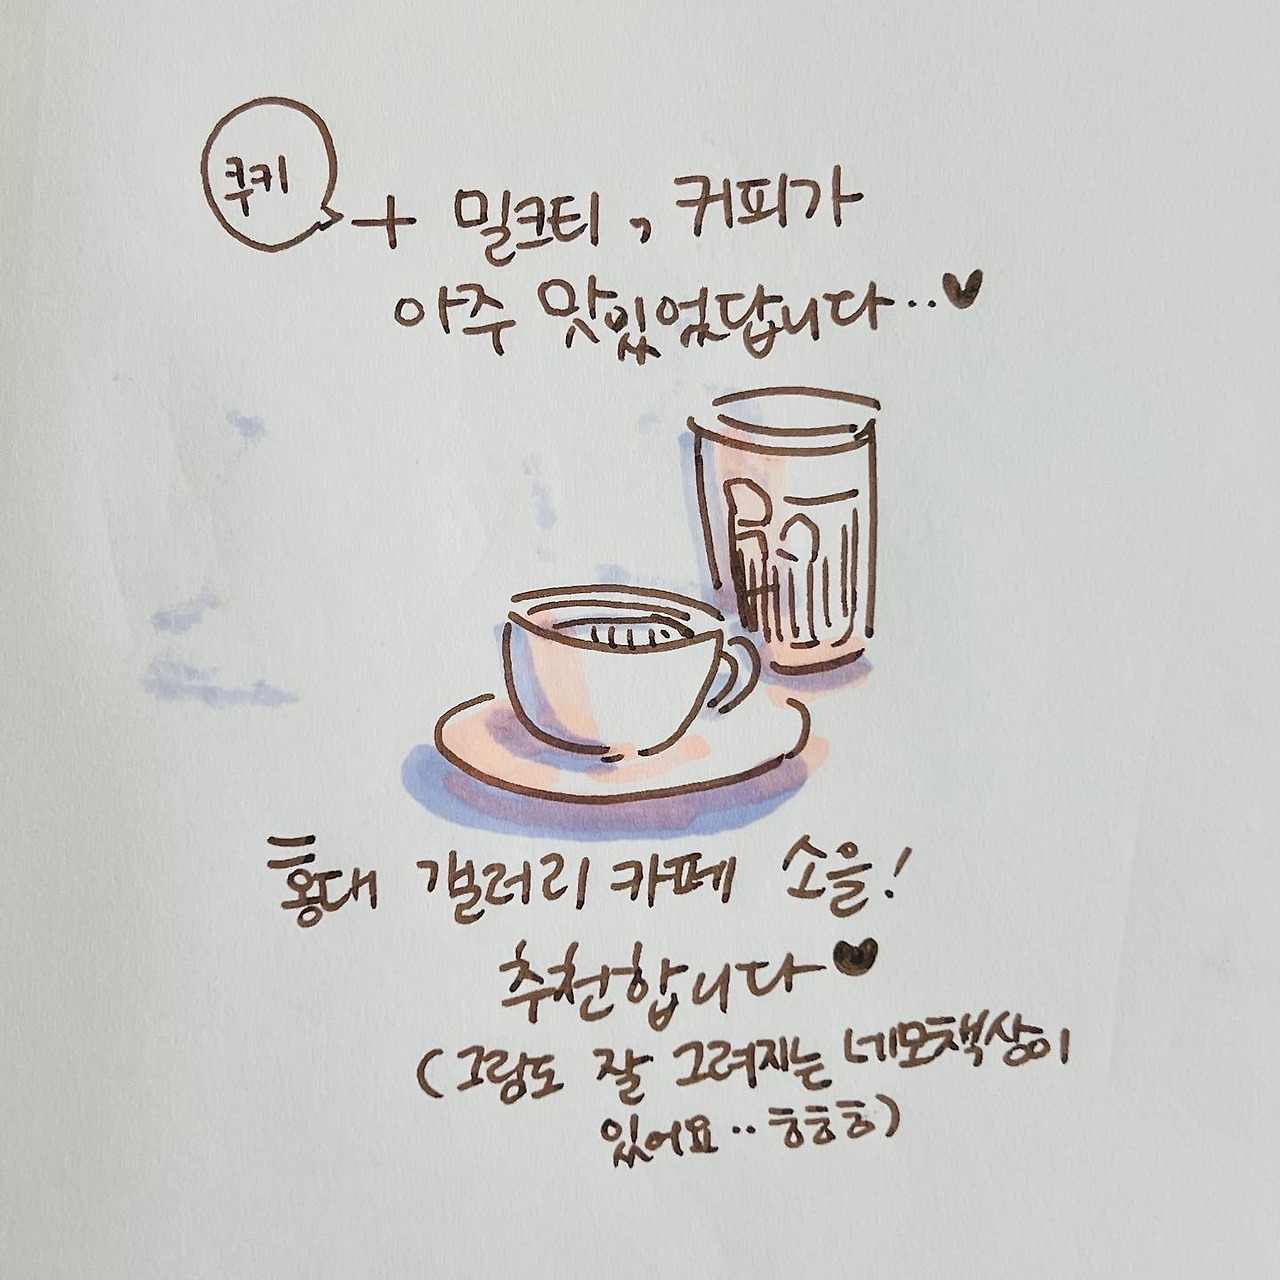 쿠키
+ 밀크티, 커피가
아주 맛있었답니다..♥
홍대 갤러리 카페 소을!
추천합니다♥
(그랑도 잘 그려지는 네모책상이
있어요..ㅎㅎㅎ)